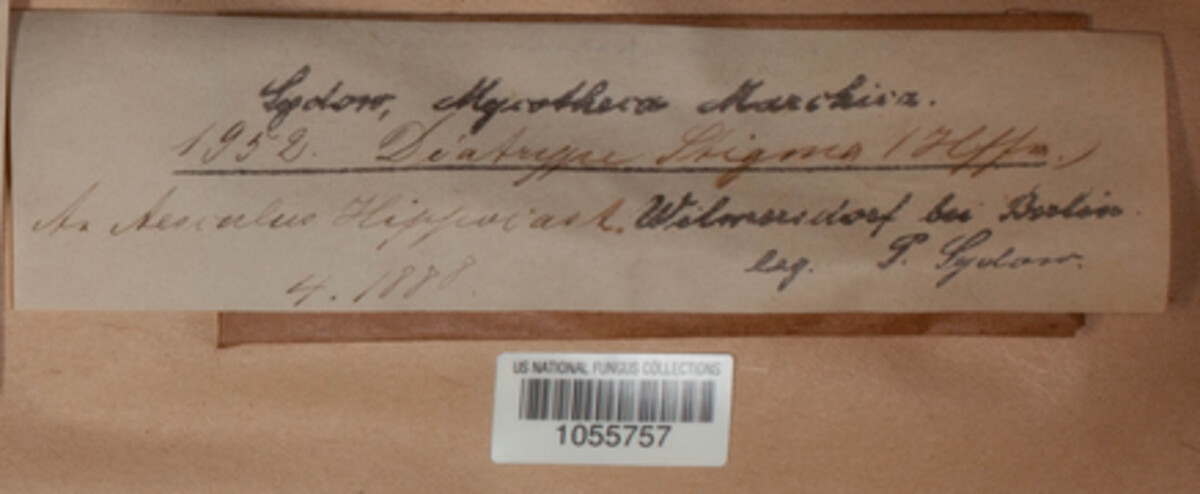 Sydow, Mycotheca Marchica.
1952. Diatrype Stigma (Hffm.)
An Aesculus Hippocast. Wilmersdorf bei Berlin.
4. 1888. leg. P. Sydow.
US NATIONAL FUNGUS COLLECTIONS
1055757